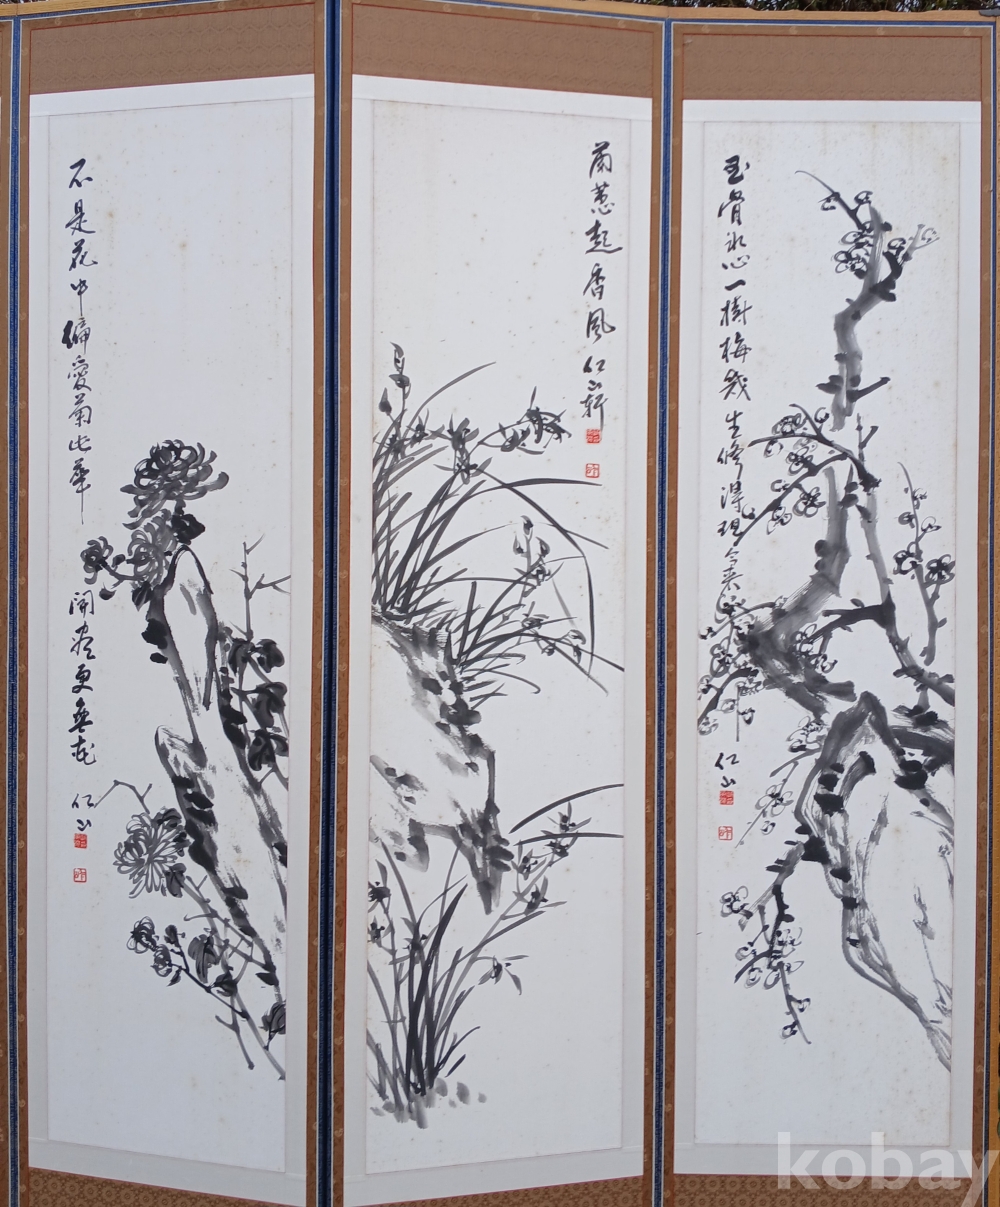 玉骨氷心一樹梅幾生修得現今來
仁山
蘭蕙起香風 仁山軒
不是花中偏愛菊此華
開盡更無花 仁山
kobay